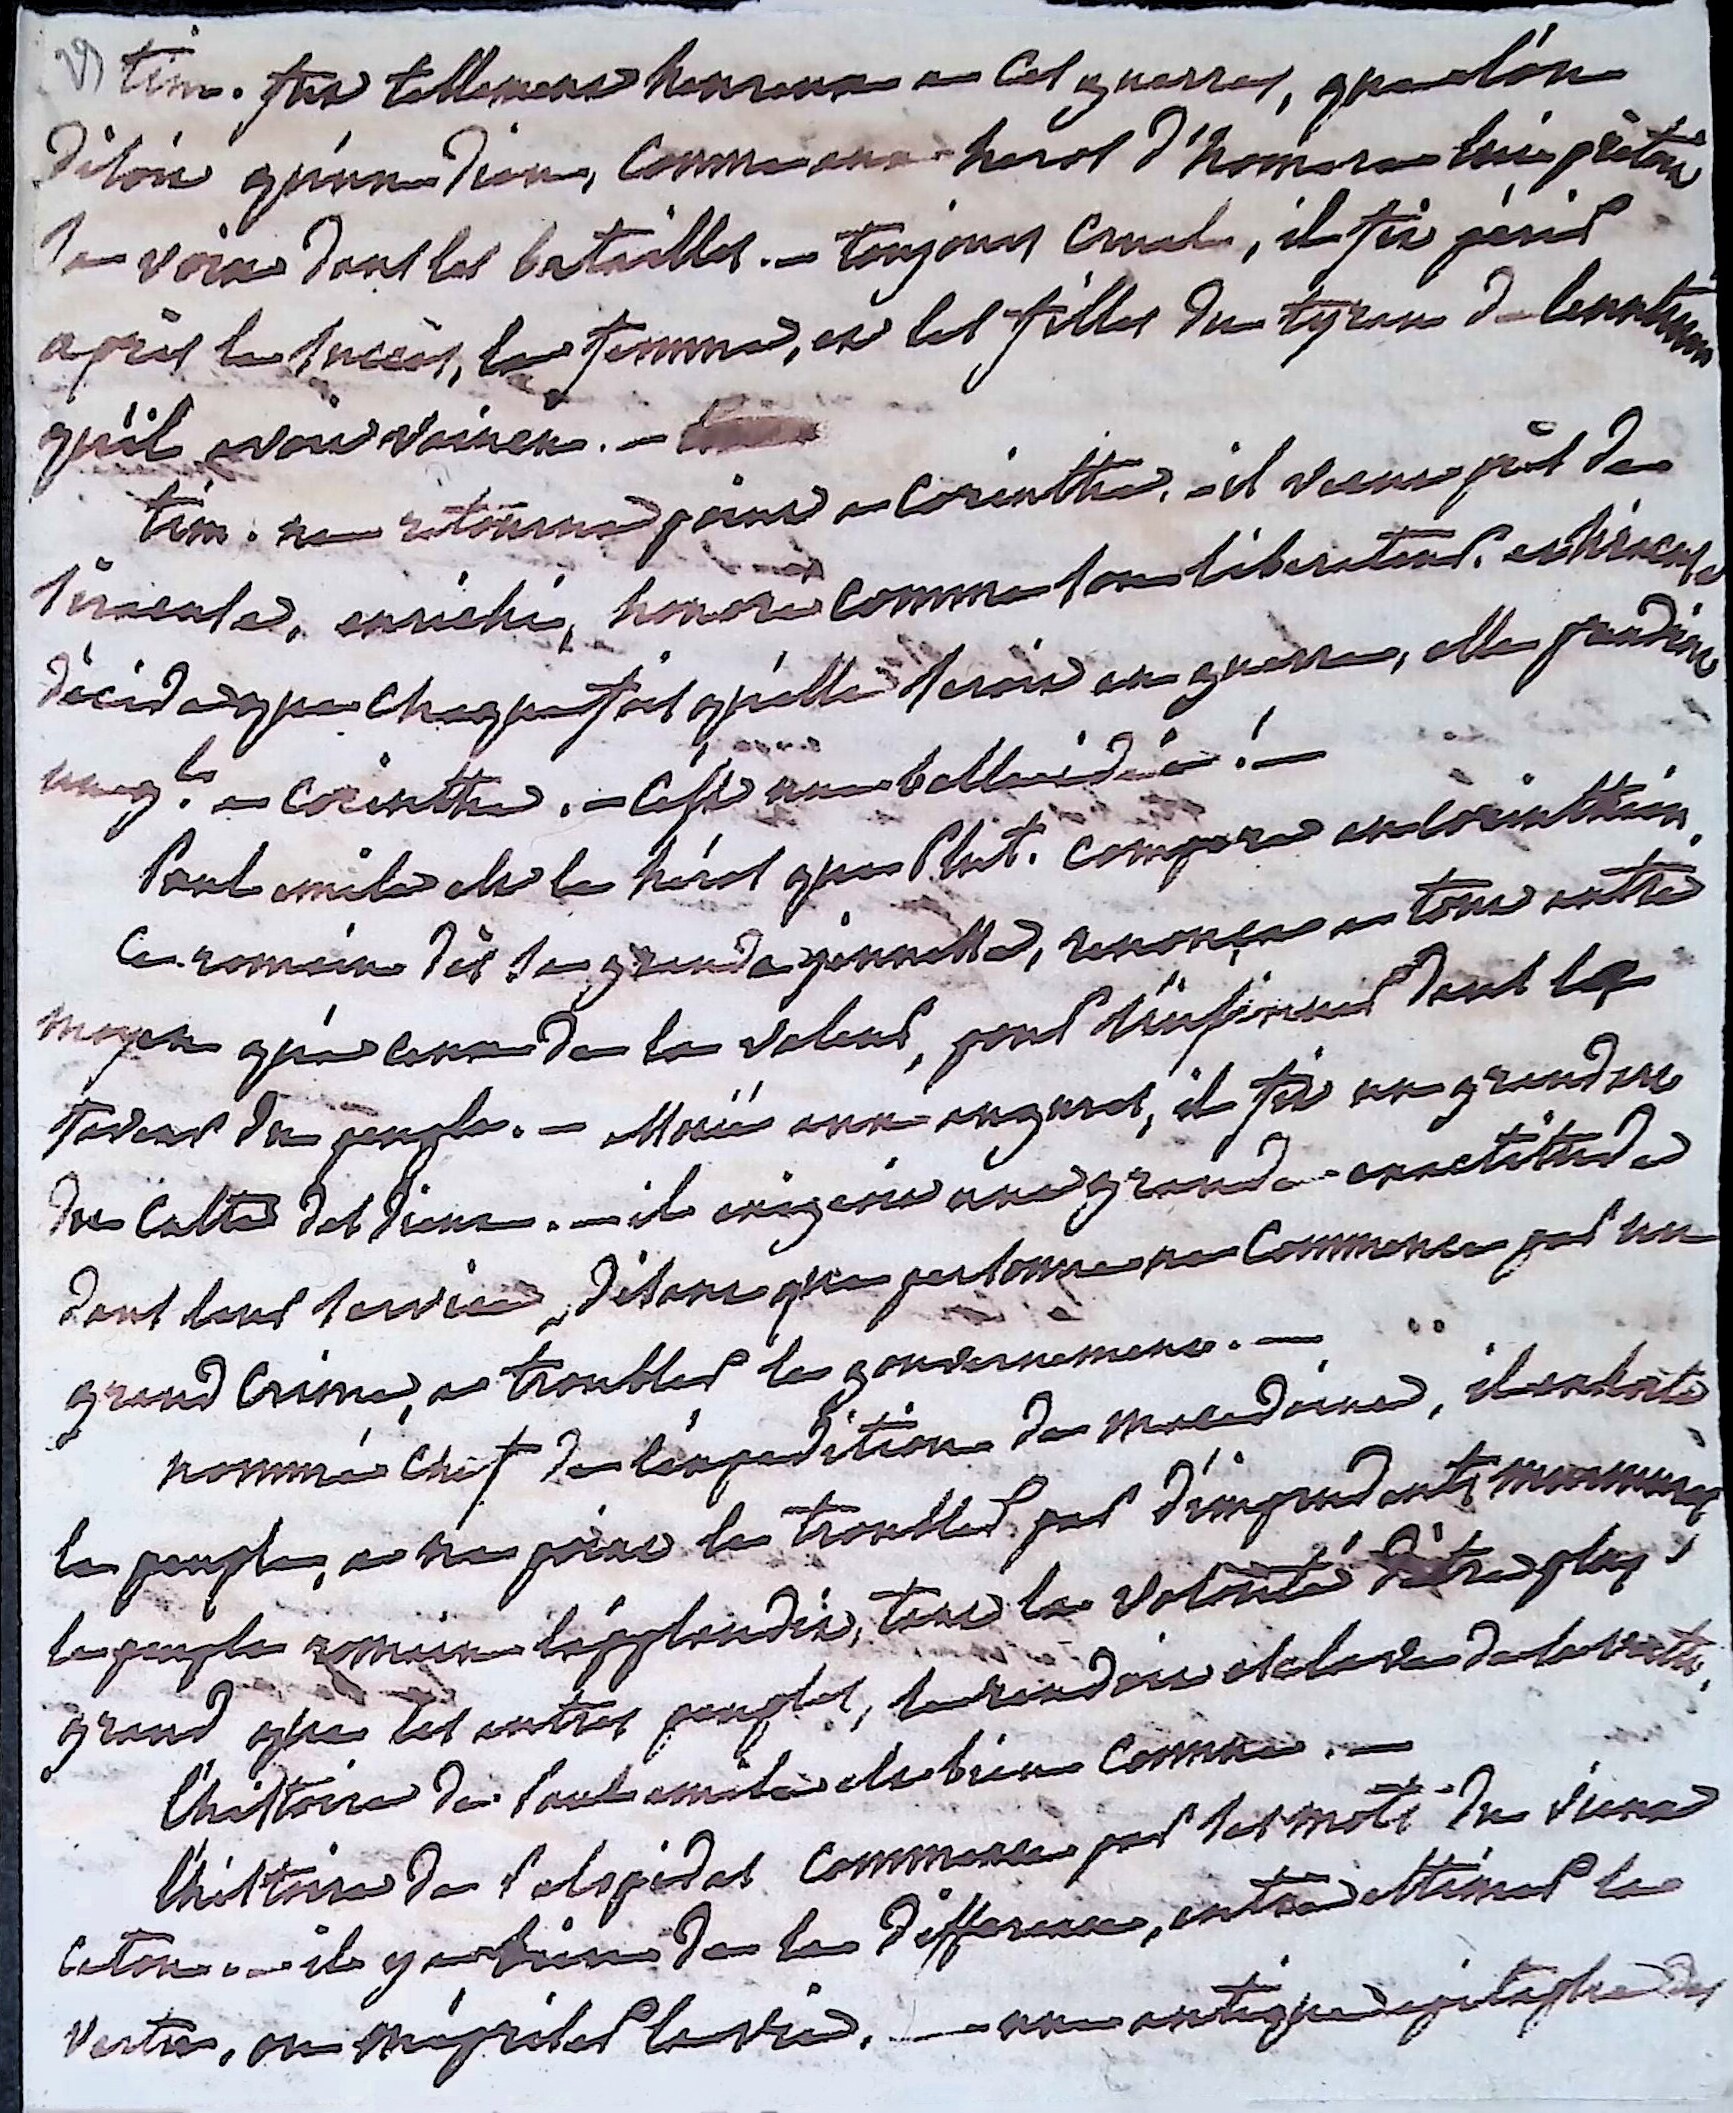 tim. fut tellement heureux a ces guerres, que l'on
disoit qu'un dieu, comme aux heros d'homere lui prêtoit
sa voix dans les batailles. — toujours cruel, il fit périr
après le succès, la femme, et les filles du tyran de leontium
qu'il avoit vaincu. —
tim. ne retourna point a Corinthe. – il vecut près de
siracuse, enrichi, honoré comme son liberateur. et siracuse
décida que chaque fois qu'elle seroit en guerre, elle prendroit
un gl. a Corinthe. – c'est une belle idée ! —
Paul emile est le héros que Plut. compare au Corinthien.
Ce romain dès sa grande jeunesse, renonça a tout autre
moyen qu'a ceux de la valeur, pour s'insinuer dans la
faveur du peuple. — associé aux augures, il fit un grand art
du culte des dieux. — il exigeoit une grande exactitude
dans leur service, disant que personne ne commence par un
grand crime, a troubler le gouvernement. —
nommé chef de l'expedition de macedoine, il exhorte
le peuple, a ne point le troubler par d'imprudents murmures
le peuple romain l'applaudit, tant la volonté d'être plus
grand que les autres peuples, le rendoit esclave de la vertu.
l'histoire de Paul emile est bien connue. —
l'histoire de Pelopidas commence par ces mots du vieux
caton. — il y a bien de la difference, entre estimer la
vertu, ou mépriser la vie. — une antique epitaphe des